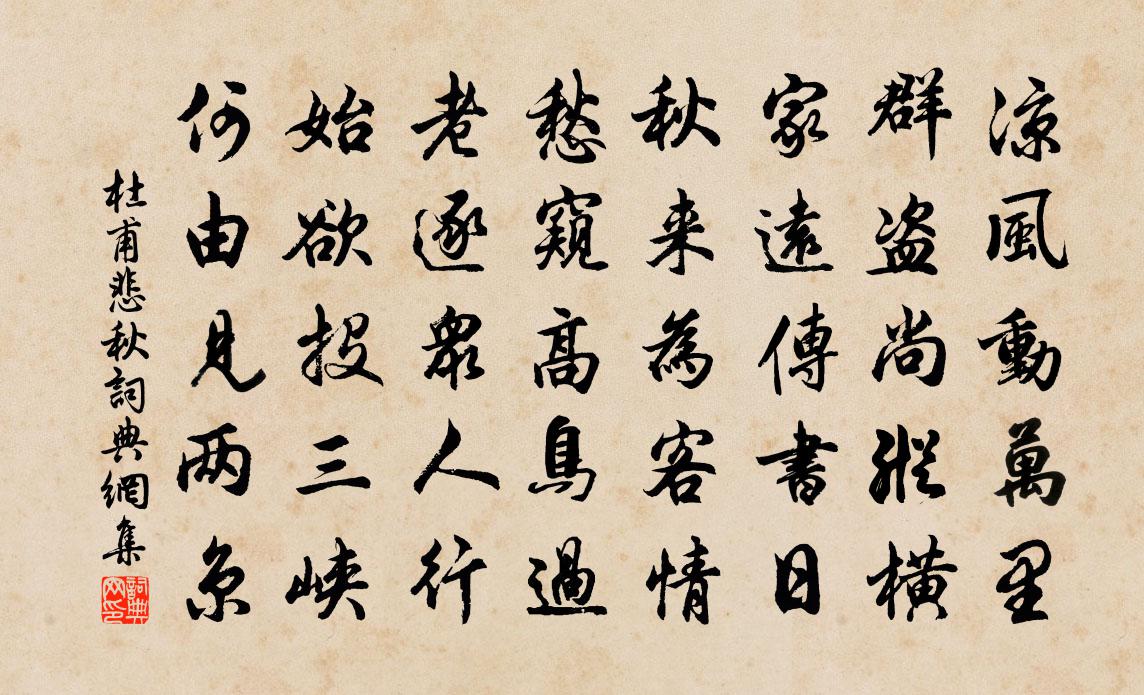 涼風動萬里
群盗尚縱橫
家遠傳書日
秋来為客情
愁窺高鳥過
老逐衆人行
始欲投三峽
何由見两京
杜甫悲秋詞典網集
詞典网印